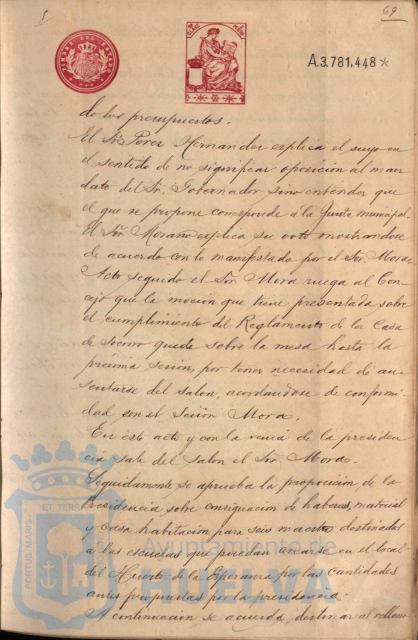 69
A.3.781,448*
TIMBRE DEL ESTADO
do los presupuestos.
El Sr. Perez Hernandez esplica el suyo en
el sentido de no significar oposición al man
dato del Sr. Gobernador sino entender que
el que se propone corresponde á la Junta municipal
El Sr. Moraño esplica su voto mostrandose
de acuerdo con lo manifestado por el Sor. Mora
Acto seguido el Sor. Mora ruega al Con
cejo que la moción que tiene presentada sobre
el cumplimiento del Reglamento de la Casa
de Socorro quede sobre la mesa hasta la
próxima sesion, por tener necesidad de au
sentarse del salon, acordandose de conformi
dad con el Señor Mora.
En este acto y con la venia de la presiden
cia sale del Salon el Sor. Mora.
Seguidamente se aprueba la proposicion de la
Presidencia sobre consignacion de haberes, material
y casa habitacion para seis maestros destinados
a las escuelas que puedan crearse en el local
del Huerto de la Esperanza por las cantidades
antes propuestas por la presidencia.
A continuacion se acuerda destinar al
PORTUS MARIS
ET TERRAE
Ayuntamiento de
HUELVA